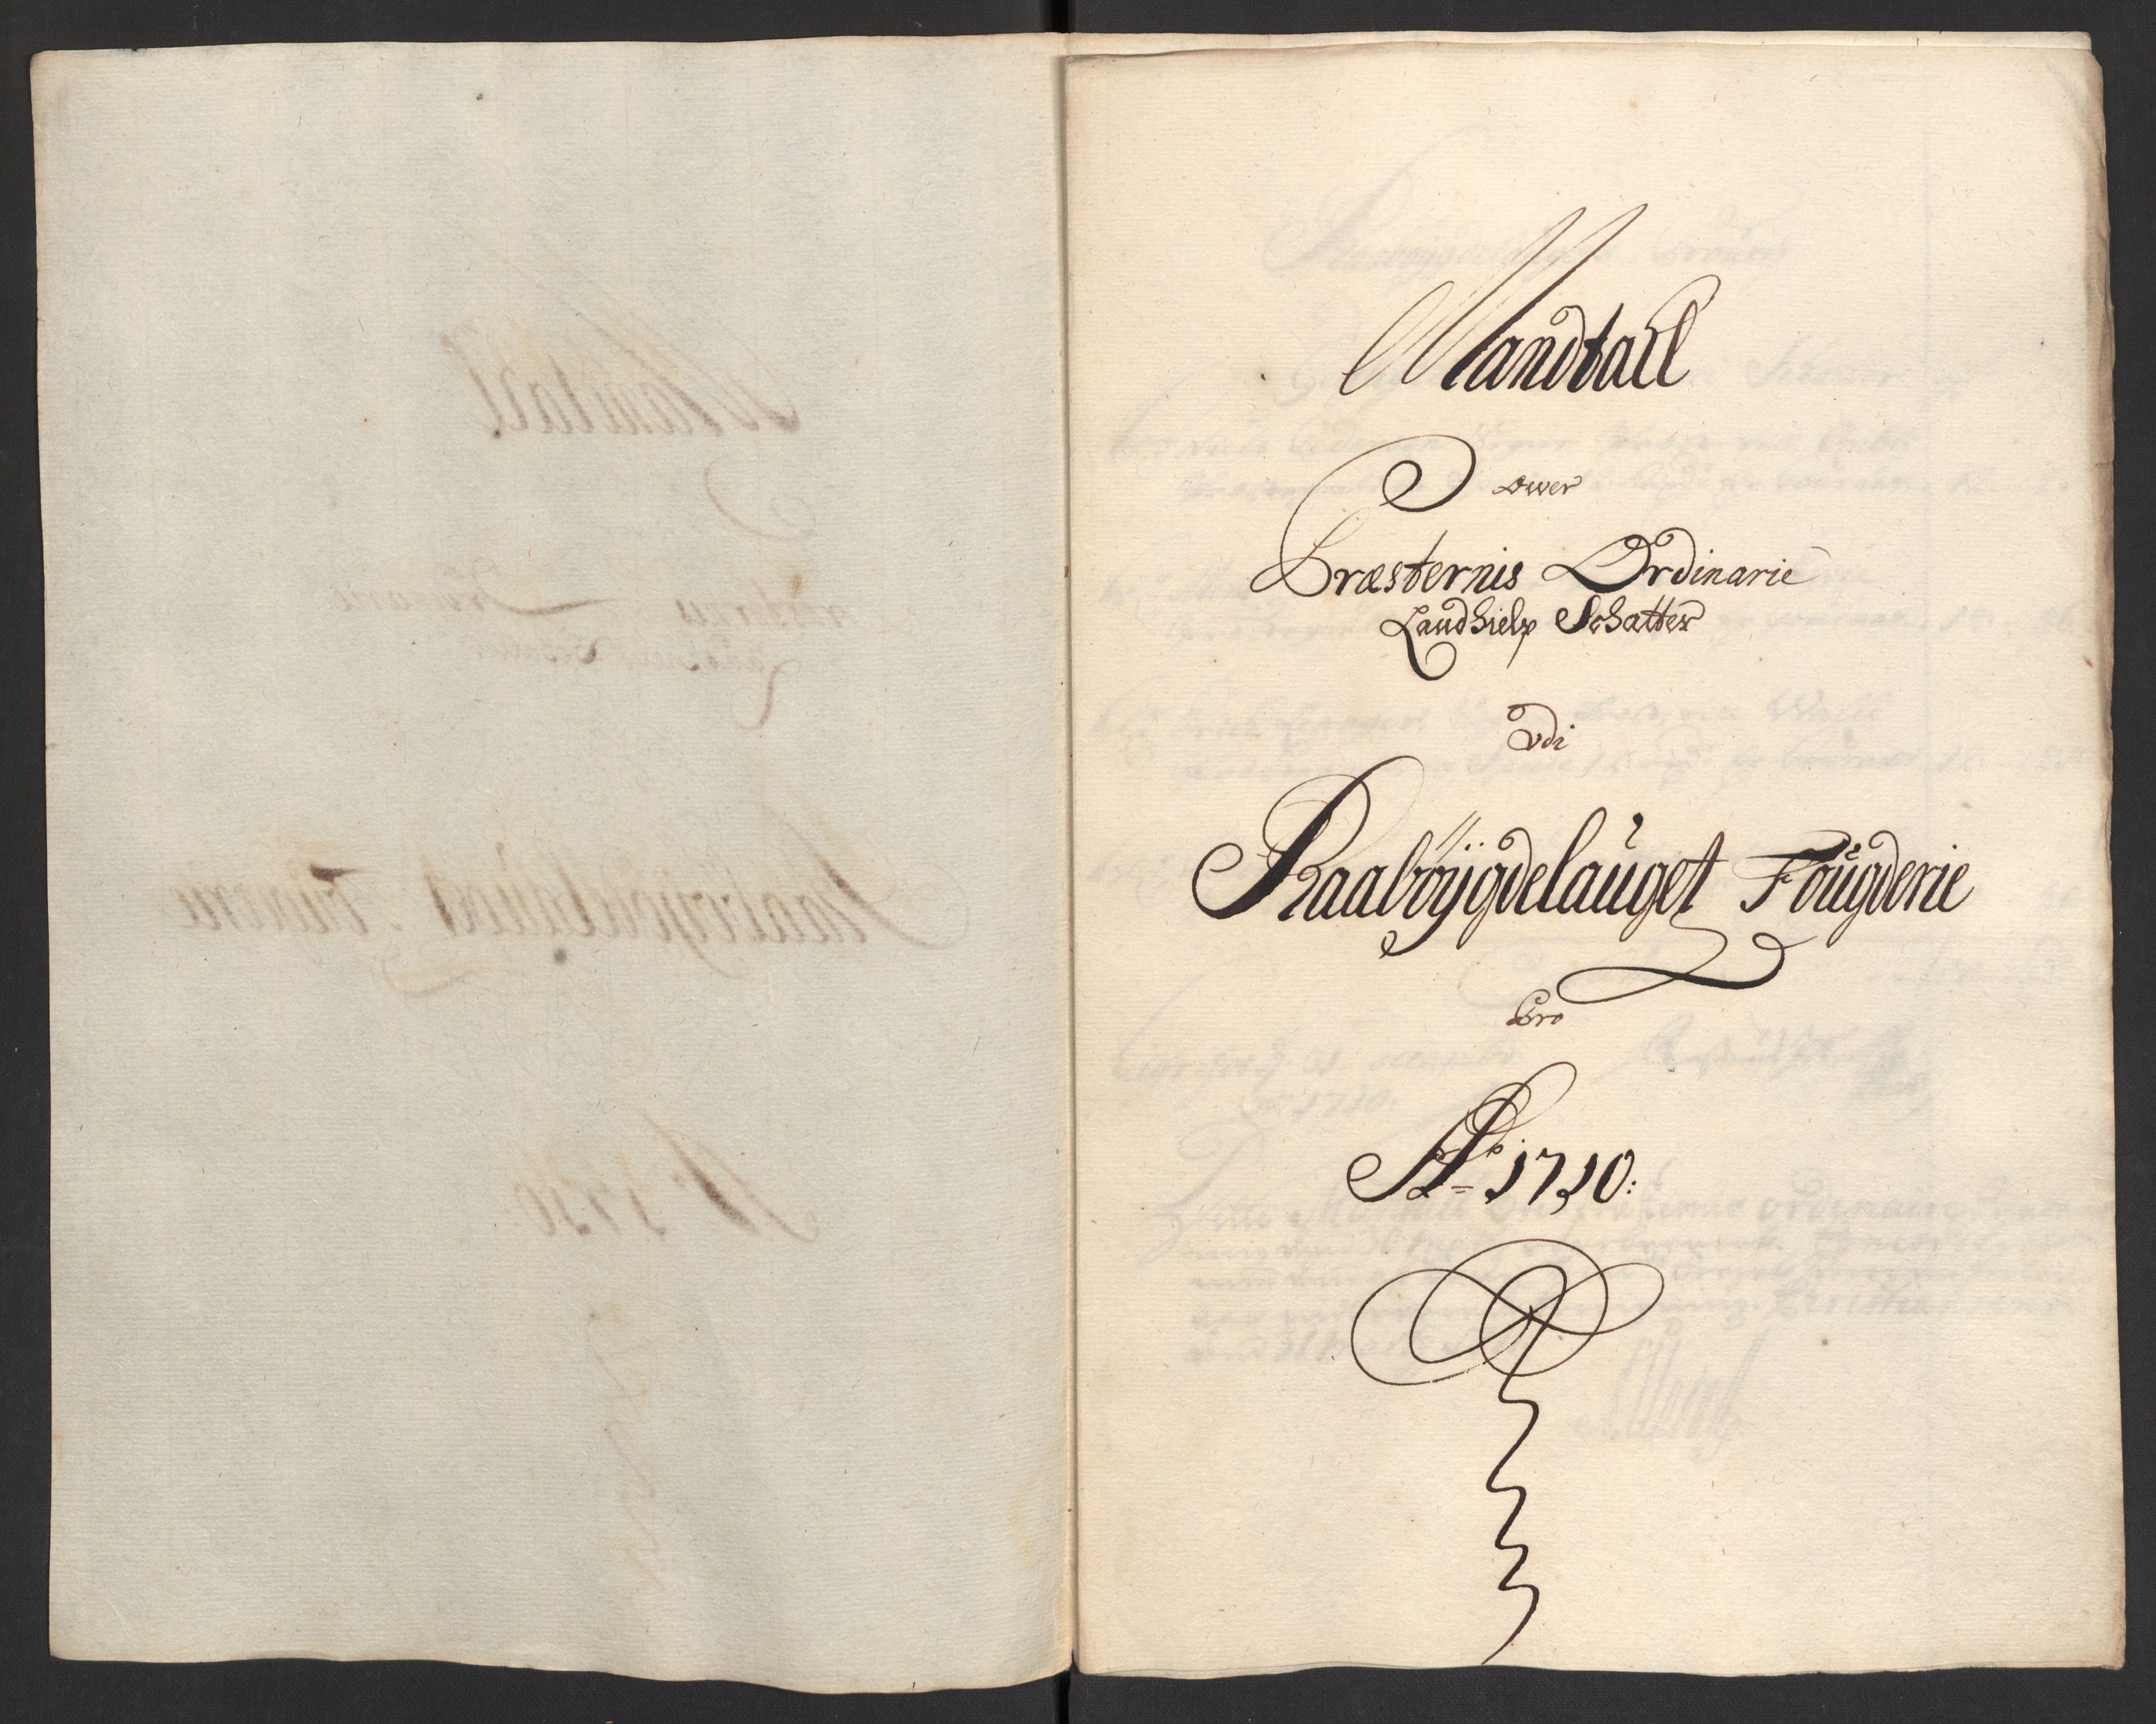 Mandtall
ower
Præsternis Ordinarie
Landhielp Schatter
udi
Raabøÿgdelauget Fougderie
Pro
Ao 1710: